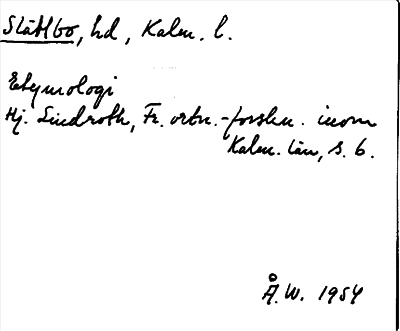 Slättbo, hd, Kalm. l.
Etymologi
Hj. Lindroth, Fr. ortn.-forskn. inom
Kalm. län, s. 6.
Å.W. 1954